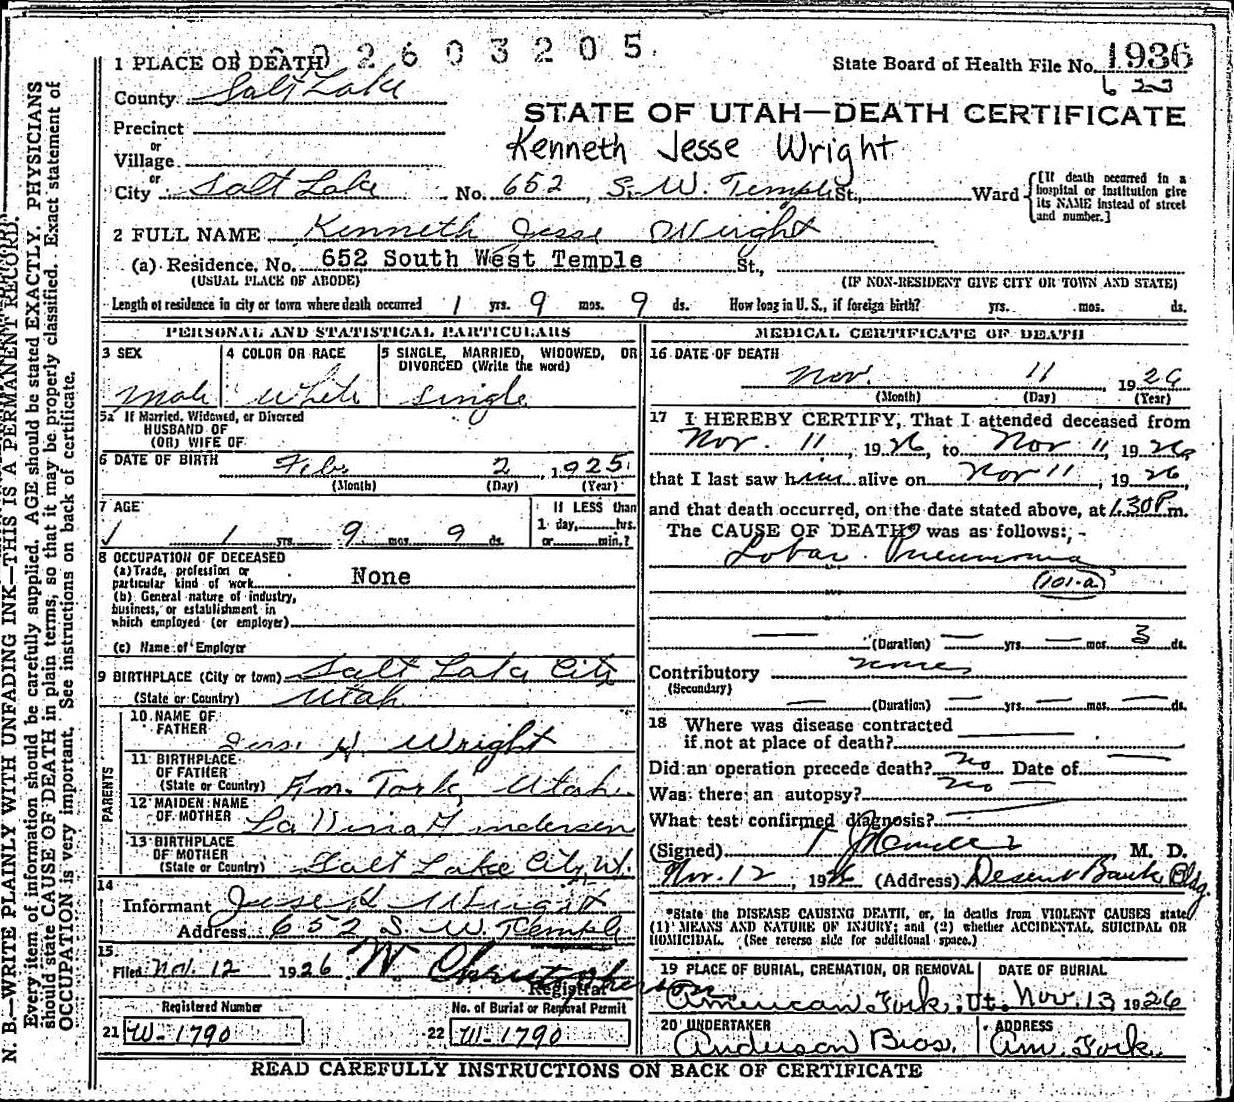 N. B.—WRITE PLAINLY WITH UNFADING INK—THIS IS A PERMANENT RECORD.
Every item of information should be carefully supplied. AGE should be stated EXACTLY. PHYSICIANS
should state CAUSE OF DEATH in plain terms, so that it may be properly classified. Exact statement of
OCCUPATION is very important. See instructions on back of certificate.
2 6 0 3 2 0 5
1 PLACE OF DEATH
State Board of Health File No. 1936
County Salt Lake
STATE OF UTAH—DEATH CERTIFICATE
Precinct
or
Village
Kenneth Jesse Wright
or
City Salt Lake No. 652 S. W. Temple St., Ward
[If death occurred in a
hospital or institution give
its NAME instead of street
and number.]
2 FULL NAME Kenneth Jesse Wright
(a) Residence, No. 652 South West Temple St.,
(USUAL PLACE OF ABODE) (IF NON-RESIDENT GIVE CITY OR TOWN AND STATE)
Length of residence in city or town where death occurred 1 yrs. 9 mos. 9 ds. How long in U. S., if foreign birth? yrs. mos. ds.
PERSONAL AND STATISTICAL PARTICULARS
3 SEX
Male
4 COLOR OR RACE
White
5 SINGLE, MARRIED, WIDOWED, OR
DIVORCED (Write the word)
Single
5a If Married, Widowed, or Divorced
HUSBAND OF
(OR) WIFE OF
6 DATE OF BIRTH Feb 2, 1925
(Month) (Day) (Year)
7 AGE
1 yrs. 9 mos. 9 ds.
If LESS than
1 day, hrs.
or min.?
8 OCCUPATION OF DECEASED
(a) Trade, profession or
particular kind of work None
(b) General nature of industry,
business, or establishment in
which employed (or employer)
(c) Name of Employer
9 BIRTHPLACE (City or town) Salt Lake City
(State or Country) Utah
PARENTS
10 NAME OF
FATHER Jesse H. Wright
11 BIRTHPLACE
OF FATHER
(State or Country) Am. Fork, Utah
12 MAIDEN NAME
OF MOTHER Andersen
13 BIRTHPLACE
OF MOTHER
(State or Country) Salt Lake City, Ut.
14
Informant Jesse H Wright
Address 652 S W. Temple
15
Filed Nov. 12 1926 W Christopherson
Registrar
Registered Number
21 W-1790
No. of Burial or Removal Permit
22 W-1790
MEDICAL CERTIFICATE OF DEATH
16 DATE OF DEATH
Nov. 11, 1926
(Month) (Day) (Year)
17 I HEREBY CERTIFY, That I attended deceased from
Nov. 11, 1926, to Nov 11, 1926,
that I last saw him alive on Nov 11, 1926,
and that death occurred, on the date stated above, at 1.30 P.m.
The CAUSE OF DEATH* was as follows:
Lobar Pneumonia
(101-a)
(Duration) yrs. mos. 3 ds.
Contributory none
(Secondary)
(Duration) yrs. mos. ds.
18 Where was disease contracted
if not at place of death?
Did an operation precede death? No Date of
Was there an autopsy? No
What test confirmed diagnosis?
(Signed) M. D.
Nov. 12, 1926 (Address) Deseret Bank Bldg.
*State the DISEASE CAUSING DEATH, or, in deaths from VIOLENT CAUSES state
(1) MEANS AND NATURE OF INJURY; and (2) whether ACCIDENTAL, SUICIDAL OR
HOMICIDAL. (See reverse side for additional space.)
19 PLACE OF BURIAL, CREMATION, OR REMOVAL
American Fork, Ut.
DATE OF BURIAL
Nov. 13 1926
20 UNDERTAKER
Anderson Bros.
ADDRESS
Am. Fork
READ CAREFULLY INSTRUCTIONS ON BACK OF CERTIFICATE